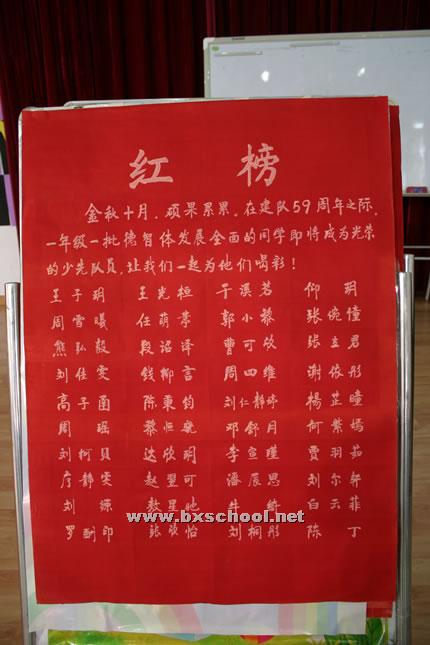 红 榜
金秋十月，硕果累累。在建队59周年之际，
一年级一批德智体发展全面的同学即将成为光荣
的少先队员，让我们一起为他们喝彩！
王子玥 王光桓 于溪若 仰玥
周雪曦 任萌葶 郭小黎 张婉憧
熊弘毅 段诏译 曹可欣 张立君
刘佳雯 钱柳言 周四维 谢依彤
高子函 陈秉钧 刘仁静婷 杨芷瞳
周瑶 黎恒 邓舒月 何紫嫣
刘柯贝 达欣玥 李宣瑾 贾羽茹
廖静雯 赵翌可 潘展思 刘尔
刘源 敖星 牛 白云菲
www.bxschool.net
罗 印 张欣怡 刘桐彤 陈丁